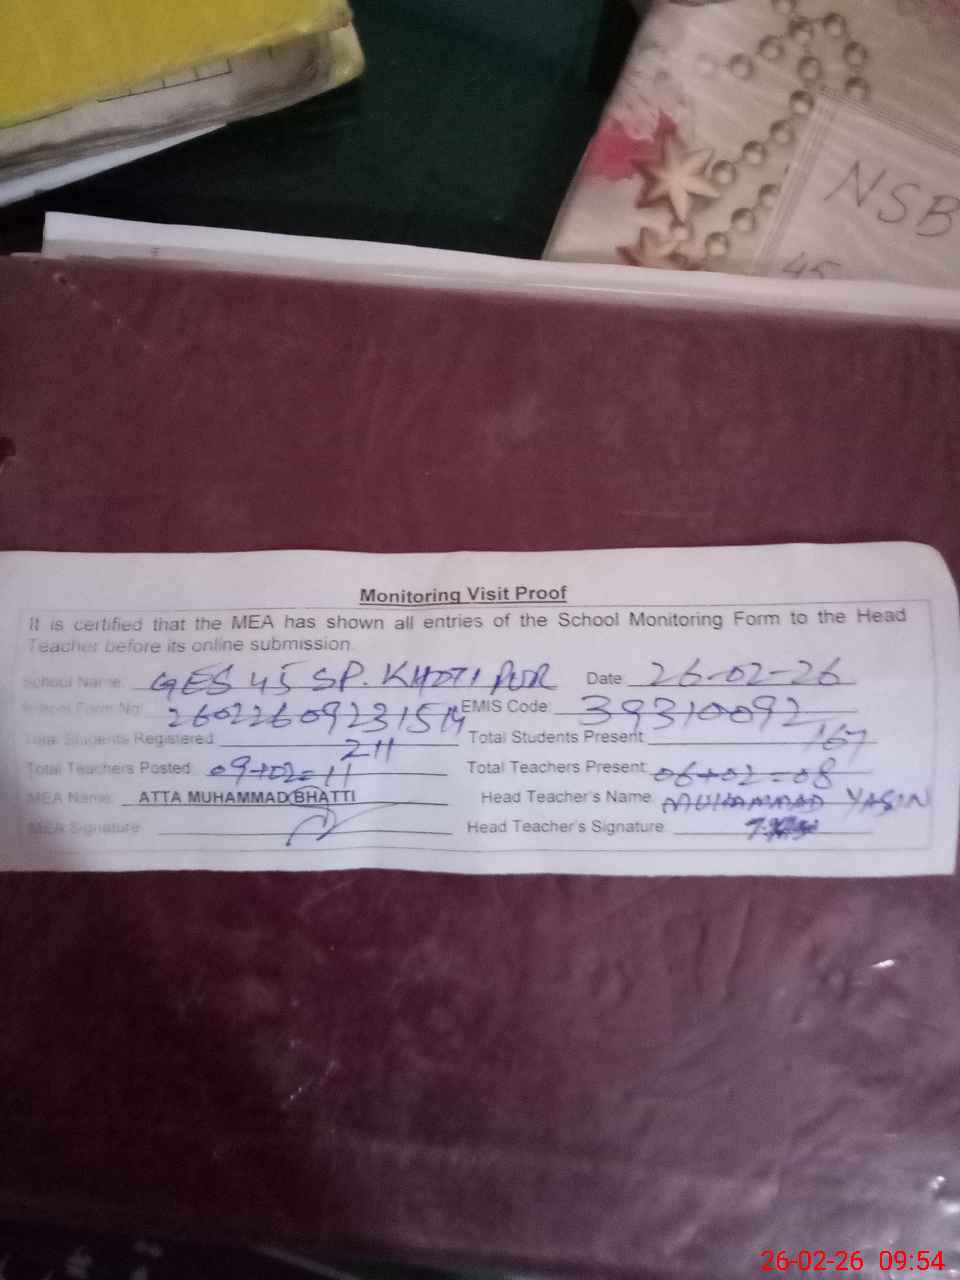 NSB
45
Monitoring Visit Proof
It is certified that the MEA has shown all entries of the School Monitoring Form to the Head
Teacher before its online submission.
School Name: GES 45 SP. KHOTI PUR Date: 26-02-26
School Form No: EMIS Code: 39310092
Total Students Registered: 211 Total Students Present: 167
Total Teachers Posted: 09+02=11 Total Teachers Present: 06+02=08
MEA Name: ATTA MUHAMMAD BHATTI Head Teacher's Name: MUHAMMAD YASIN
MEA Signature: Head Teacher's Signature:
26-02-26 09:54